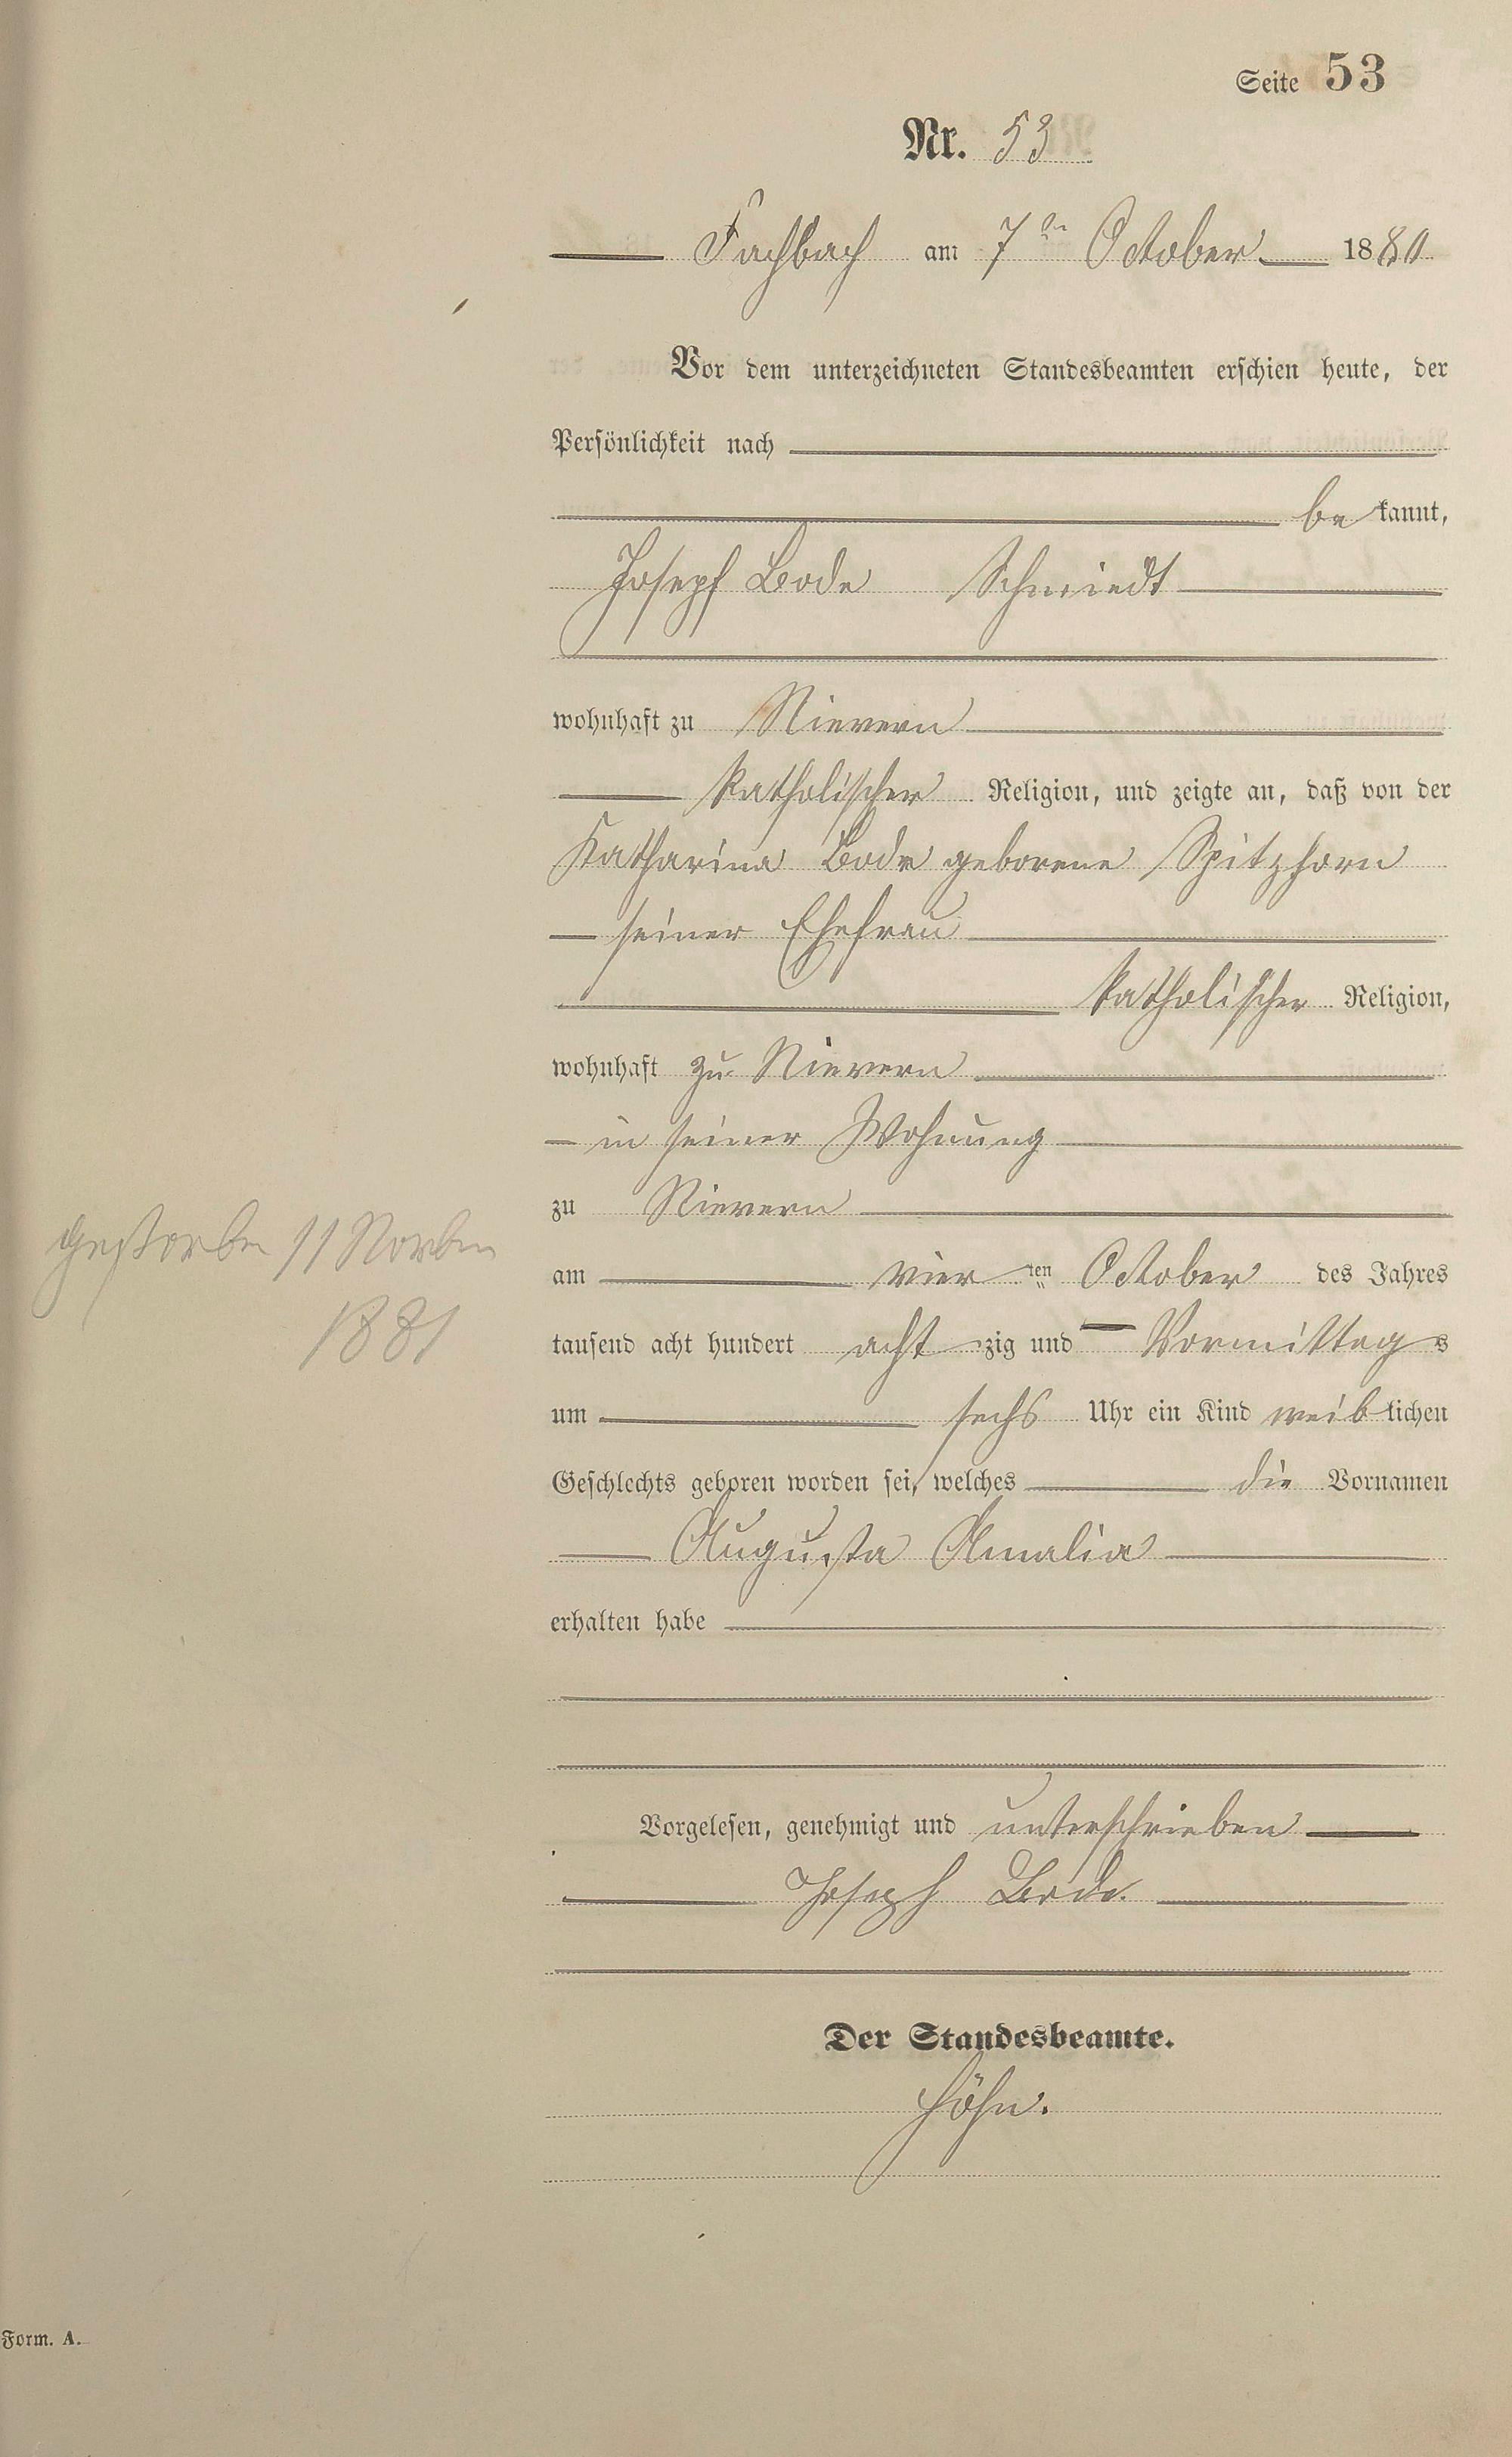 Seite 53
Nr. 53
Fachbach am 7ten October 1880
Vor dem unterzeichneten Standesbeamten erschien heute, der
Persönlichkeit nach
be kannt,
Joseph Bode Schmiedt
wohnhaft zu Nievern
katholischer Religion, und zeigte an, daß von der
Katharina Bode geborene Spitzhorn
seiner Ehefrau
katholischer Religion,
wohnhaft zu Nievern
in seiner Wohnung
zu Nievern
gestorben 11 Novbm
1881
am vier ten October des Jahres
tausend acht hundert acht zig und Vormittag s
um sechs Uhr ein Kind weib lichen
Geschlechts geboren worden sei, welches die Vornamen
Augusta Amalia
erhalten habe
Vorgelesen, genehmigt und unterschrieben
Joseph Bode.
Der Standesbeamte.
Höhn.
Form. A.